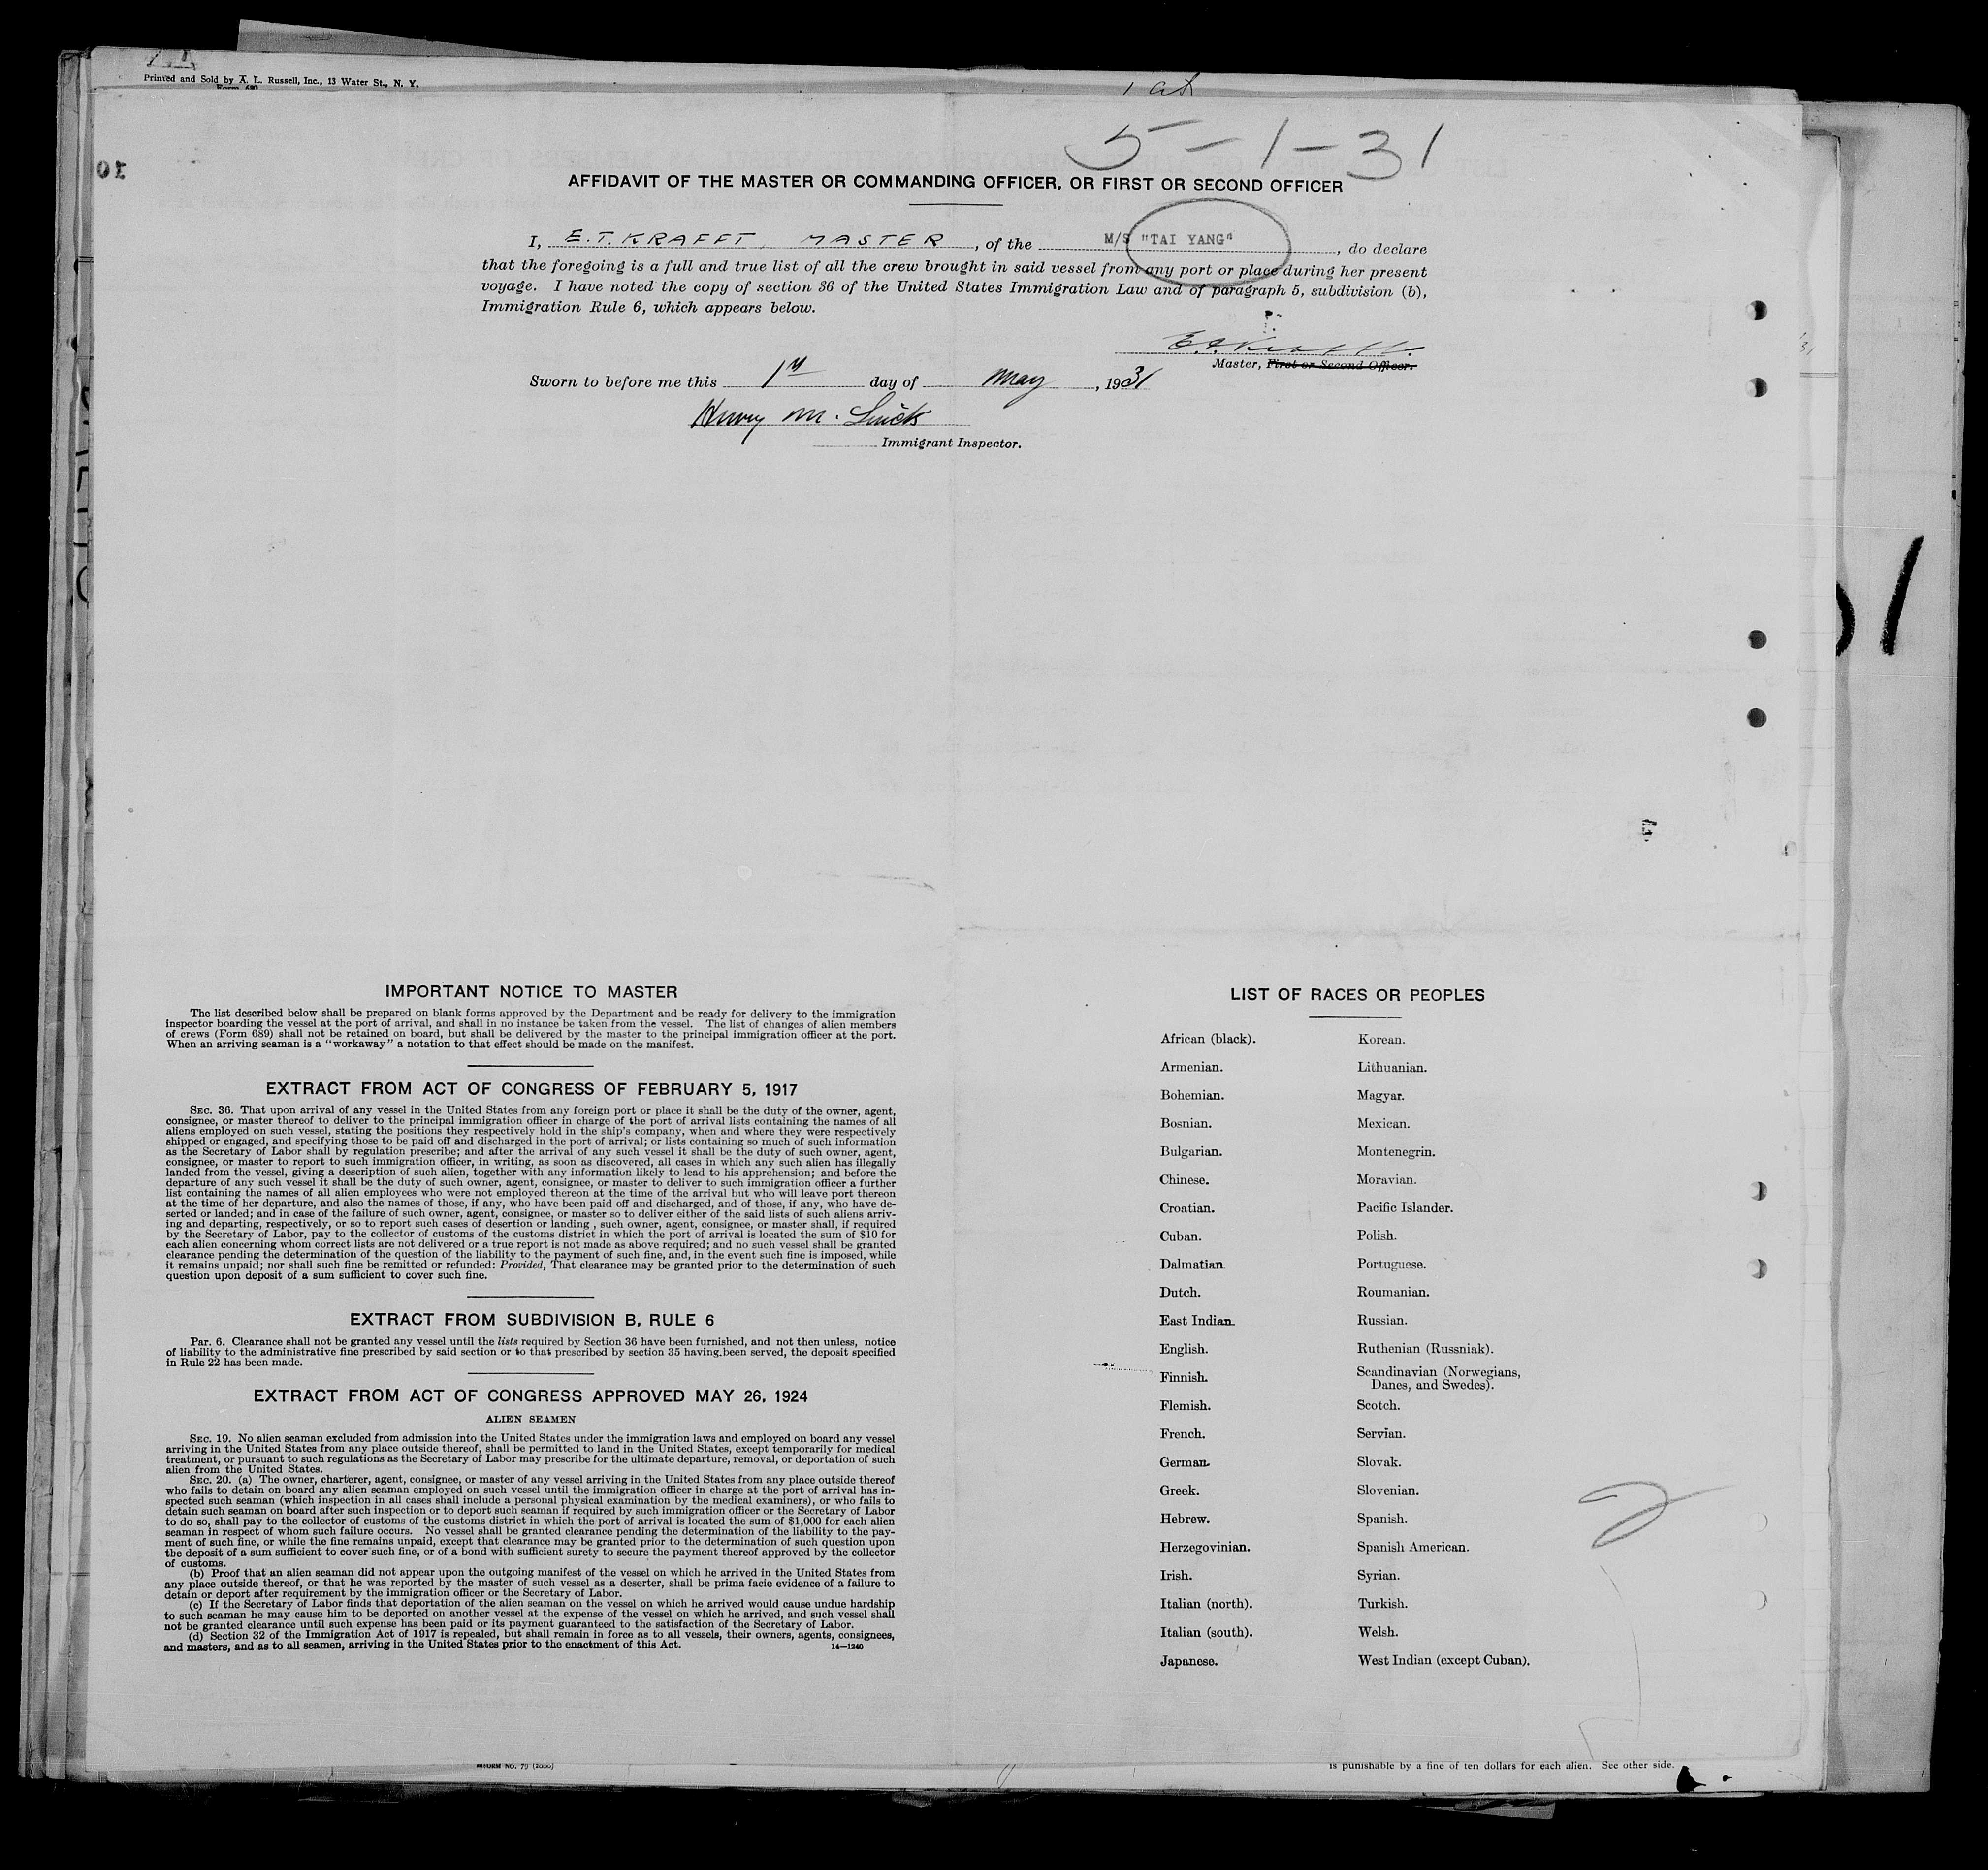 Printed and Sold by A. L. Russell, Inc., 13 Water St., N. Y.
5-1-31
AFFIDAVIT OF THE MASTER OR COMMANDING OFFICER, OR FIRST OR SECOND OFFICER
I, E.T. KRAFFT, MASTER, of the M/S "TAI YANG", do declare
that the foregoing is a full and true list of all the crew brought in said vessel from any port or place during her present
voyage. I have noted the copy of section 36 of the United States Immigration Law and of paragraph 5, subdivision (b),
Immigration Rule 6, which appears below.
Master, First or Second Officer.
Sworn to before me this 1st day of May, 1931
Henry M.
Immigrant Inspector.
IMPORTANT NOTICE TO MASTER
The list described below shall be prepared on blank forms approved by the Department and be ready for delivery to the immigration
inspector boarding the vessel at the port of arrival, and shall in no instance be taken from the vessel. The list of changes of alien members
of crews (Form 689) shall not be retained on board, but shall be delivered by the master to the principal immigration officer at the port.
When an arriving seaman is a "workaway" a notation to that effect should be made on the manifest.
EXTRACT FROM ACT OF CONGRESS OF FEBRUARY 5, 1917
SEC. 36. That upon arrival of any vessel in the United States from any foreign port or place it shall be the duty of the owner, agent,
consignee, or master thereof to deliver to the principal immigration officer in charge of the port of arrival lists containing the names of all
aliens employed on such vessel, stating the positions they respectively hold in the ship's company, when and where they were respectively
shipped or engaged, and specifying those to be paid off and discharged in the port of arrival; or lists containing so much of such information
as the Secretary of Labor shall by regulation prescribe; and after the arrival of any such vessel it shall be the duty of such owner, agent,
consignee, or master to report to such immigration officer, in writing, as soon as discovered, all cases in which any such alien has illegally
landed from the vessel, giving a description of such alien, together with any information likely to lead to his apprehension; and before the
departure of any such vessel it shall be the duty of such owner, agent, consignee, or master to deliver to such immigration officer a further
list containing the names of all alien employees who were not employed thereon at the time of the arrival but who will leave port thereon
at the time of her departure, and also the names of those, if any, who have been paid off and discharged, and of those, if any, who have de-
serted or landed; and in case of the failure of such owner, agent, consignee, or master so to deliver either of the said lists of such aliens arriv-
ing and departing, respectively, or so to report such cases of desertion or landing , such owner, agent, consignee, or master shall, if required
by the Secretary of Labor, pay to the collector of customs of the customs district in which the port of arrival is located the sum of $10 for
each alien concerning whom correct lists are not delivered or a true report is not made as above required; and no such vessel shall be granted
clearance pending the determination of the question of the liability to the payment of such fine, and, in the event such fine is imposed, while
it remains unpaid; nor shall such fine be remitted or refunded: Provided, That clearance may be granted prior to the determination of such
question upon deposit of a sum sufficient to cover such fine.
EXTRACT FROM SUBDIVISION B, RULE 6
Par. 6. Clearance shall not be granted any vessel until the lists required by Section 36 have been furnished, and not then unless, notice
of liability to the administrative fine prescribed by said section or to that prescribed by section 35 having been served, the deposit specified
in Rule 22 has been made.
EXTRACT FROM ACT OF CONGRESS APPROVED MAY 26, 1924
ALIEN SEAMEN
SEC. 19. No alien seaman excluded from admission into the United States under the immigration laws and employed on board any vessel
arriving in the United States from any place outside thereof, shall be permitted to land in the United States, except temporarily for medical
treatment, or pursuant to such regulations as the Secretary of Labor may prescribe for the ultimate departure, removal, or deportation of such
alien from the United States.
SEC. 20. (a) The owner, charterer, agent, consignee, or master of any vessel arriving in the United States from any place outside thereof
who fails to detain on board any alien seaman employed on such vessel until the immigration officer in charge at the port of arrival has in-
spected such seaman (which inspection in all cases shall include a personal physical examination by the medical examiners), or who fails to
detain such seaman on board after such inspection or to deport such seaman if required by such immigration officer or the Secretary of Labor
to do so, shall pay to the collector of customs of the customs district in which the port of arrival is located the sum of $1,000 for each alien
seaman in respect of whom such failure occurs. No vessel shall be granted clearance pending the determination of the liability to the pay-
ment of such fine, or while the fine remains unpaid, except that clearance may be granted prior to the determination of such question upon
the deposit of a sum sufficient to cover such fine, or of a bond with sufficient surety to secure the payment thereof approved by the collector
of customs.
(b) Proof that an alien seaman did not appear upon the outgoing manifest of the vessel on which he arrived in the United States from
any place outside thereof, or that he was reported by the master of such vessel as a deserter, shall be prima facie evidence of a failure to
detain or deport after requirement by the immigration officer or the Secretary of Labor.
(c) If the Secretary of Labor finds that deportation of the alien seaman on the vessel on which he arrived would cause undue hardship
to such seaman he may cause him to be deported on another vessel at the expense of the vessel on which he arrived, and such vessel shall
not be granted clearance until such expense has been paid or its payment guaranteed to the satisfaction of the Secretary of Labor.
(d) Section 32 of the Immigration Act of 1917 is repealed, but shall remain in force as to all vessels, their owners, agents, consignees,
and masters, and as to all seamen, arriving in the United States prior to the enactment of this Act.
14—1240
LIST OF RACES OR PEOPLES
African (black).
Armenian.
Bohemian.
Bosnian.
Bulgarian.
Chinese.
Croatian.
Cuban.
Dalmatian.
Dutch.
East Indian.
English.
Finnish.
Flemish.
French.
German.
Greek.
Hebrew.
Herzegovinian.
Irish.
Italian (north).
Italian (south).
Japanese.
Korean.
Lithuanian.
Magyar.
Mexican.
Montenegrin.
Moravian.
Pacific Islander.
Polish.
Portuguese.
Roumanian.
Russian.
Ruthenian (Russniak).
Scandinavian (Norwegians,
Danes, and Swedes).
Scotch.
Servian.
Slovak.
Slovenian.
Spanish.
Spanish American.
Syrian.
Turkish.
Welsh.
West Indian (except Cuban).
2
is punishable by a fine of ten dollars for each alien. See other side.